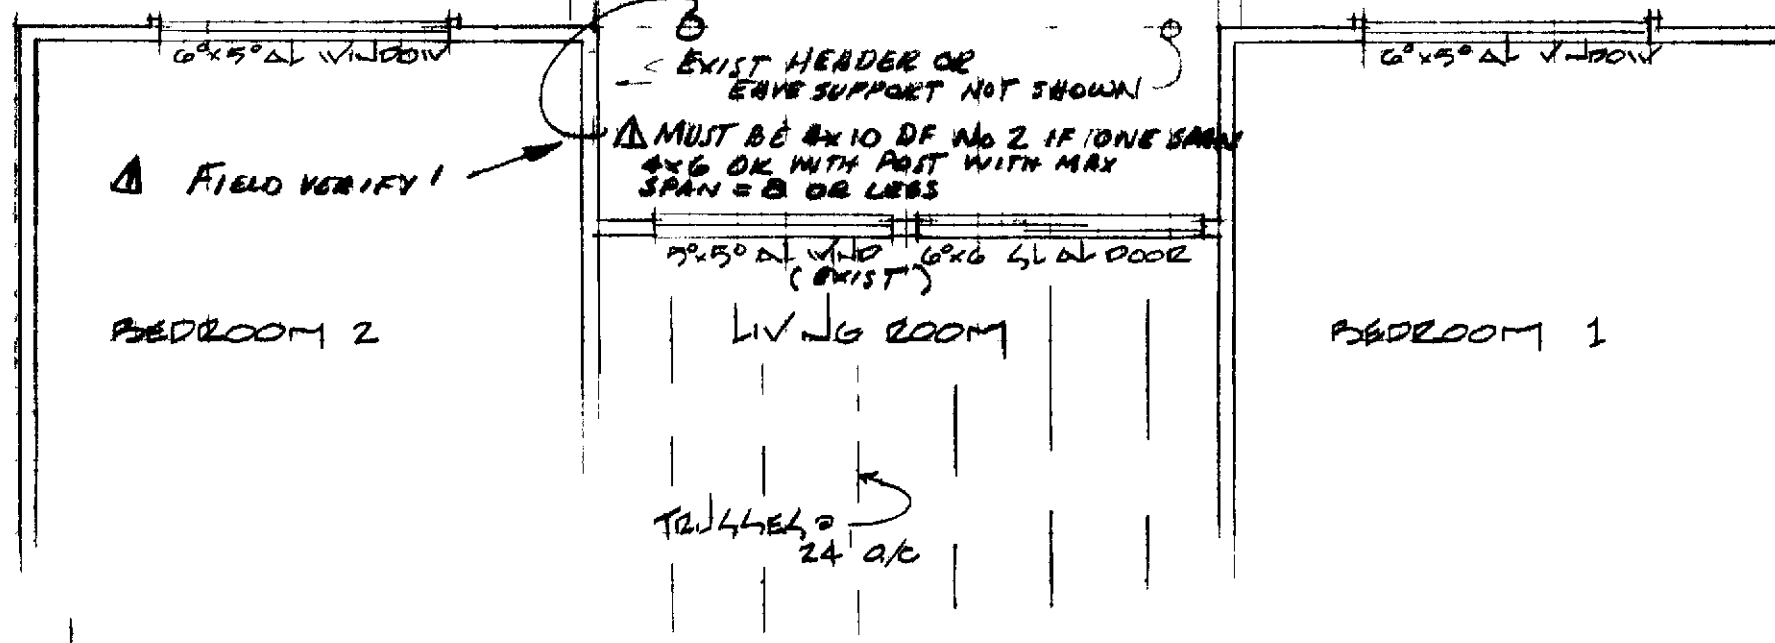 6⁰x5⁰ AL WINDOW
EXIST HEADER OR
EAVE SUPPORT NOT SHOWN
6⁰x5⁰ AL WINDOW
⚠ MUST BE 4x10 DF No 2 IF ONE SPAN
4x6 OK WITH POST WITH MAX
SPAN = 8 OR LESS
1 FIELD VERIFY !
5⁰x5⁰ AL WIND
(EXIST)
6⁰x6 SL AL DOOR
BEDROOM 2
LIVING ROOM
BEDROOM 1
TRUSSES @
24" O/C